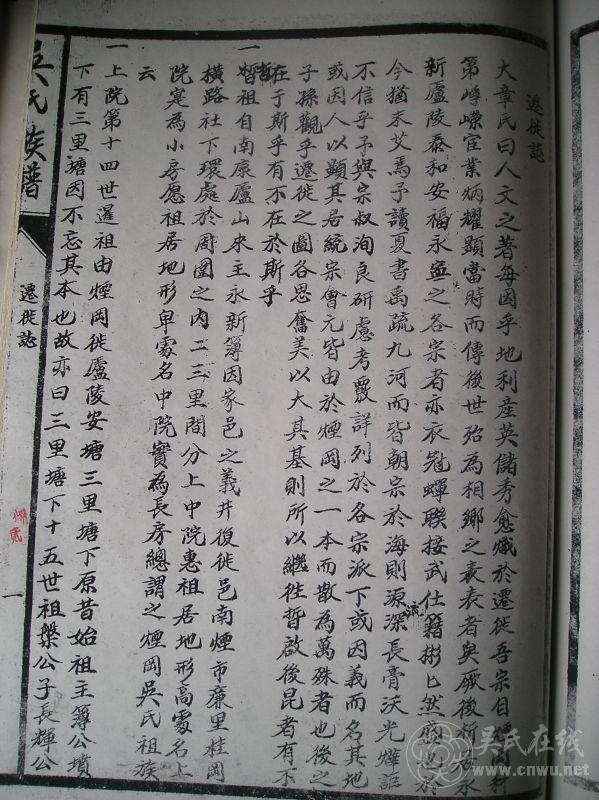 遷徙誌
大章氏曰人文之著每因乎地利産英儲秀愈熾於遷徙吾宗自煙岡科
第崢嶸宦業炳耀顯當時而傳後世殆為相鄉之表表者矣厥後所
新廬陵泰和安福永寧之各宗者亦衣冠蟬聯接武仕籍彬匕然
今猶未艾焉予讀夏書禹疏九河而皆朝宗於海則源深流長膏沃光燁詎
不信乎予與宗叔洵良研慮考覈詳列於各宗派下或因義而名其地
或因人以顯其居統宗會元皆由於煙岡之一本而散為萬殊者也後之
子孫觀乎遷徙之圖各思奮美以大其基則所以繼徃哲啟後昆者有不
在于斯乎有不在於斯乎
一 哲祖自南康廬山來主永新簿因家邑之義井後徙邑南煙市廉里桂岡
橫路社下環處於周圍之內二三里間分上中院惠祖居地形高處名上
院寔為小房愿祖居地形卑處名中院實為長房總謂之煙岡吳氏祖族
云
一 上院第十四世暹祖由煙岡徙廬陵安塘三里塘下原昔始祖主簿公墳
下有三里塘因不忘其本也故亦曰三里塘下十五世祖槃公子長輝公
吳氏族譜
遷徙誌
一
吴氏在线
www.cnwu.net